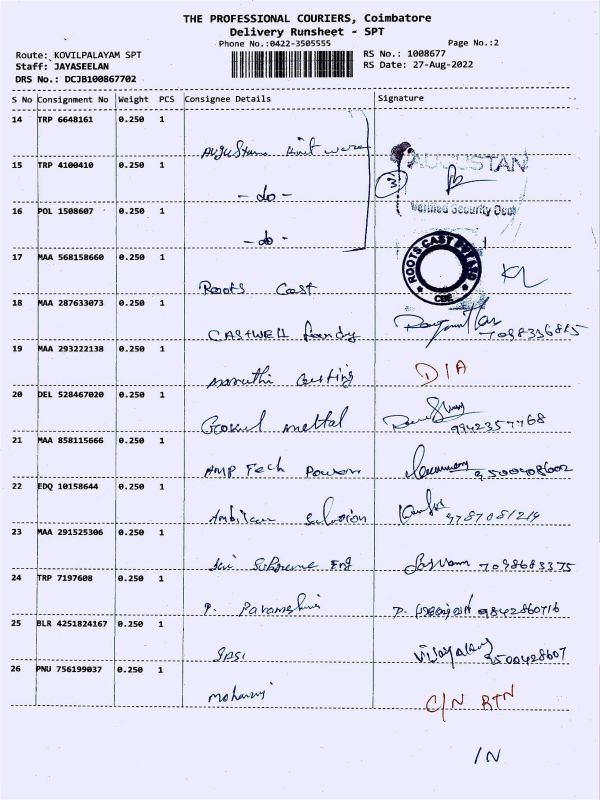 THE PROFESSIONAL COURIERS, Coimbatore
Delivery Runsheet - SPT
Phone No.:0422-3505555 Page No.:2
Route: KOVILPALAYAM SPT RS No.: 1008677
Staff: JAYASEELAN RS Date: 27-Aug-2022
DRS No.: DCJB100867702
S No Consignment No Weight PCS Consignee Details Signature
14 TRP 6648161 0.250 1
Augustan knit ware
15 TRP 4100410 0.250 1 AUGUSTAN
- do - 3
16 POL 1508607 0.250 1 Verified Security Dept
- do -
17 MAA 568158660 0.250 1 ROOTS CAST PVT LTD CBE
Roots Cast
18 MAA 287633073 0.250 1
CASTWELL foundy 7098336815
19 MAA 293222138 0.250 1
maruthi casting D/A
20 DEL 528467020 0.250 1
Gokul mettal 9942357768
21 MAA 858115666 0.250 1
AMP Tech Power 9500408602
22 EDQ 10158644 0.250 1
Ambitan Solution 9787081219
23 MAA 291525306 0.250 1
Sri Supreme Eng 7098683375
24 TRP 7197608 0.250 1
P. 9842860716
25 BLR 4251824167 0.250 1
Vijayalaxmi 9500428607
26 PNU 756199037 0.250 1
Mohanraj C/N RTN
IN